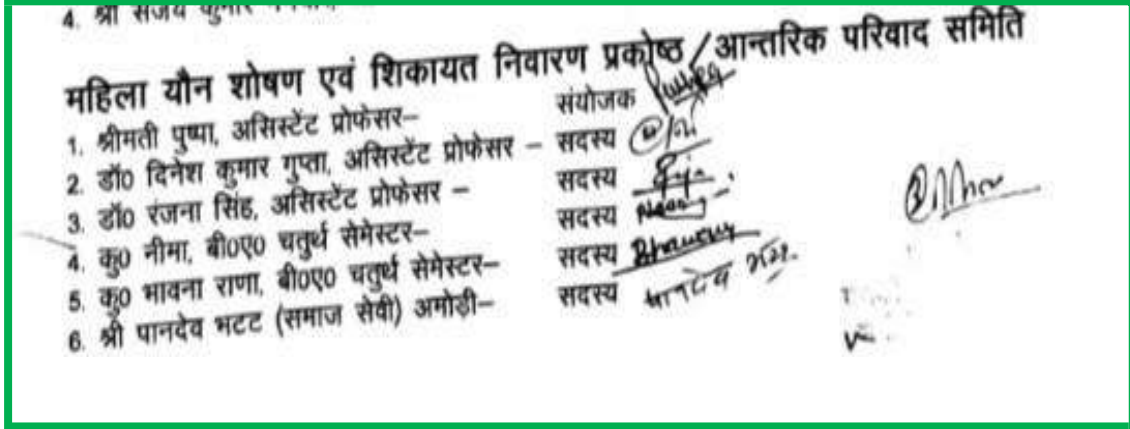 4. श्री संजय कुमार
महिला यौन शोषण एवं शिकायत निवारण प्रकोष्ठ / आन्तरिक परिवाद समिति
1. श्रीमती पुष्पा, असिस्टेंट प्रोफेसर– संयोजक Pushpa
2. डॉ0 दिनेश कुमार गुप्ता, असिस्टेंट प्रोफेसर – सदस्य
3. डॉ0 रंजना सिंह, असिस्टेंट प्रोफेसर – सदस्य
4. कु0 नीमा, बी0ए0 चतुर्थ सेमेस्टर– सदस्य
5. कु0 भावना राणा, बी0ए0 चतुर्थ सेमेस्टर– सदस्य
6. श्री पानदेव भटट (समाज सेवी) अमोड़ी– सदस्य पानदेव भटट